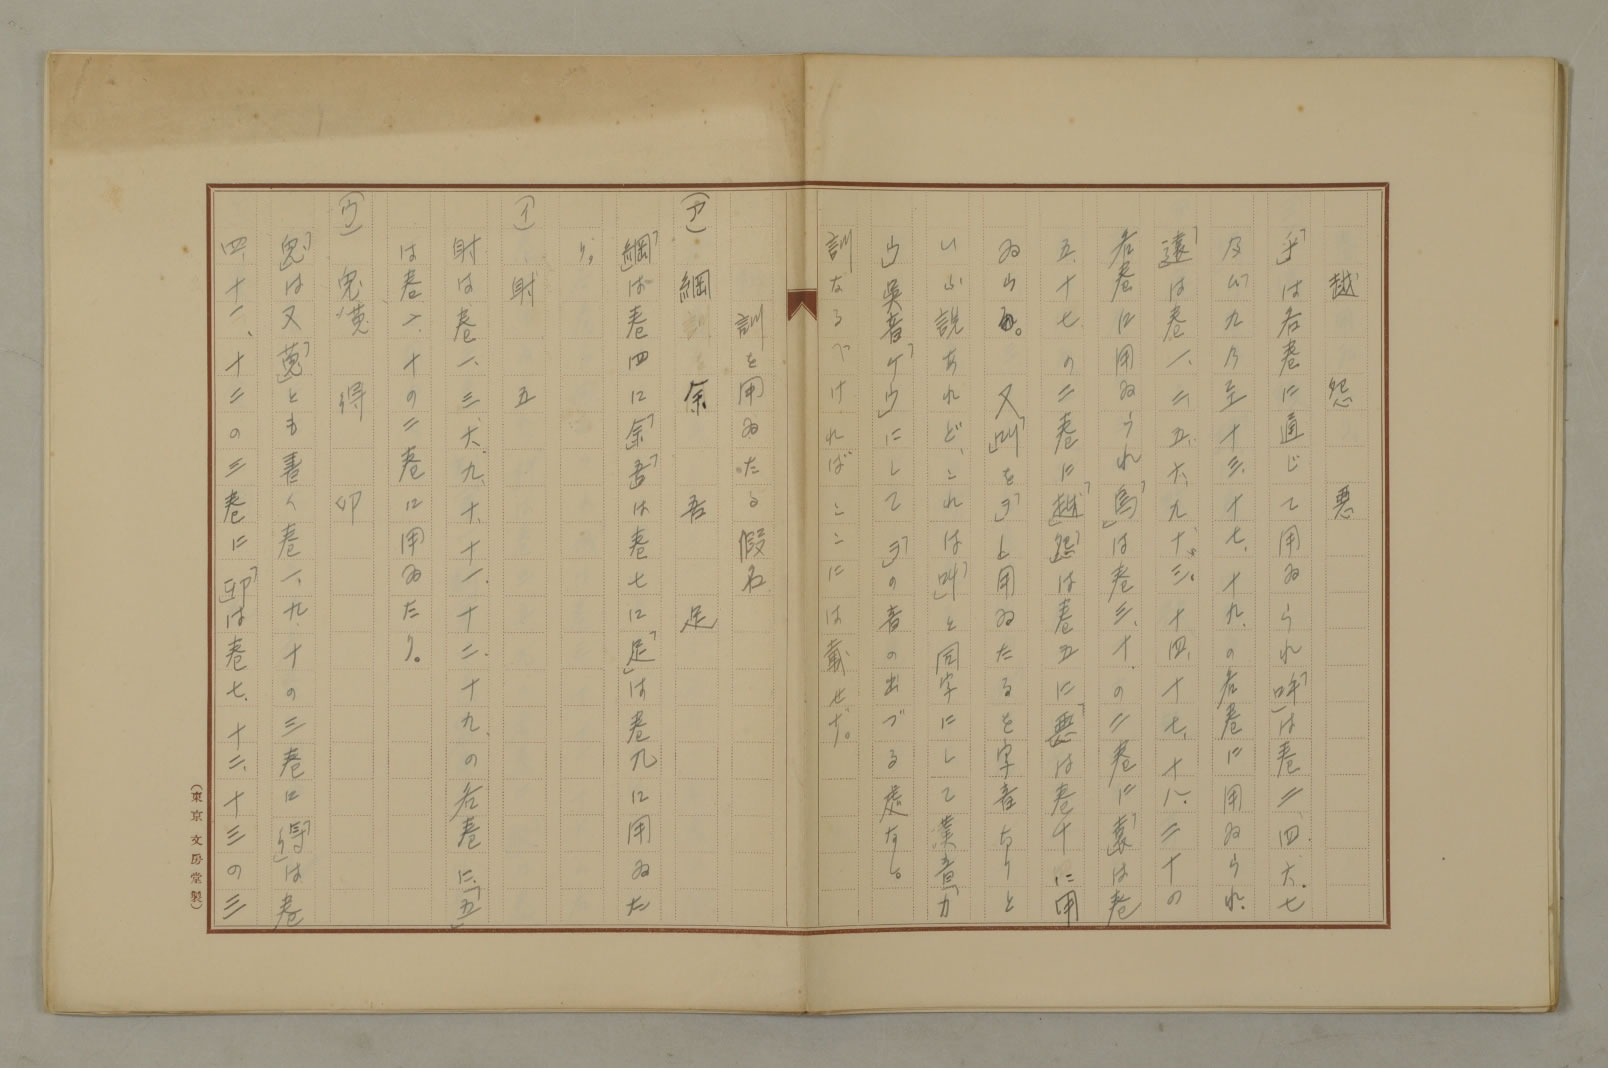 越　怨　悪
「乎」は各巻に通じて用ゐられ「呼」は巻二、四、六、七
及び九乃至十三、十七、十九、の各巻に用ゐられ、
「遠」は巻一、二、五、六、九、十、十三、十四、十七、十八、二十の
各巻に用ゐられ「烏」は巻三、十、の二巻に「袁」は巻
五、十七、の二巻に「越」「怨」は巻五に「悪」は巻十に用
ゐらる。　又「叫」を「ヲ」と用ゐたるを字音なりと
いふ説あれど、これは「叫」と同字にして漢音「カ
ウ」呉音「ケウ」にして「ヲ」の音の出づる處なし。
訓なるべければここには載せず。
訓を用ゐたる假名
(ア)　綱　余　吾　足
「綱」は巻四に「余」「吾」は巻七に「足」は巻九に用ゐた
り。
(イ)　射　五
射は巻一、三、六、九、十、十一、十二、十九、の各巻に、「五」
は巻六、十の二巻に用ゐたり。
(ウ)　兎(菟)　得　卯
「兎」は又「菟」とも書く巻一、九、十の三巻に「得」は巻
四、十一、十二の三巻に「卯」は巻七、十二、十三の三
(東京 文房堂製)